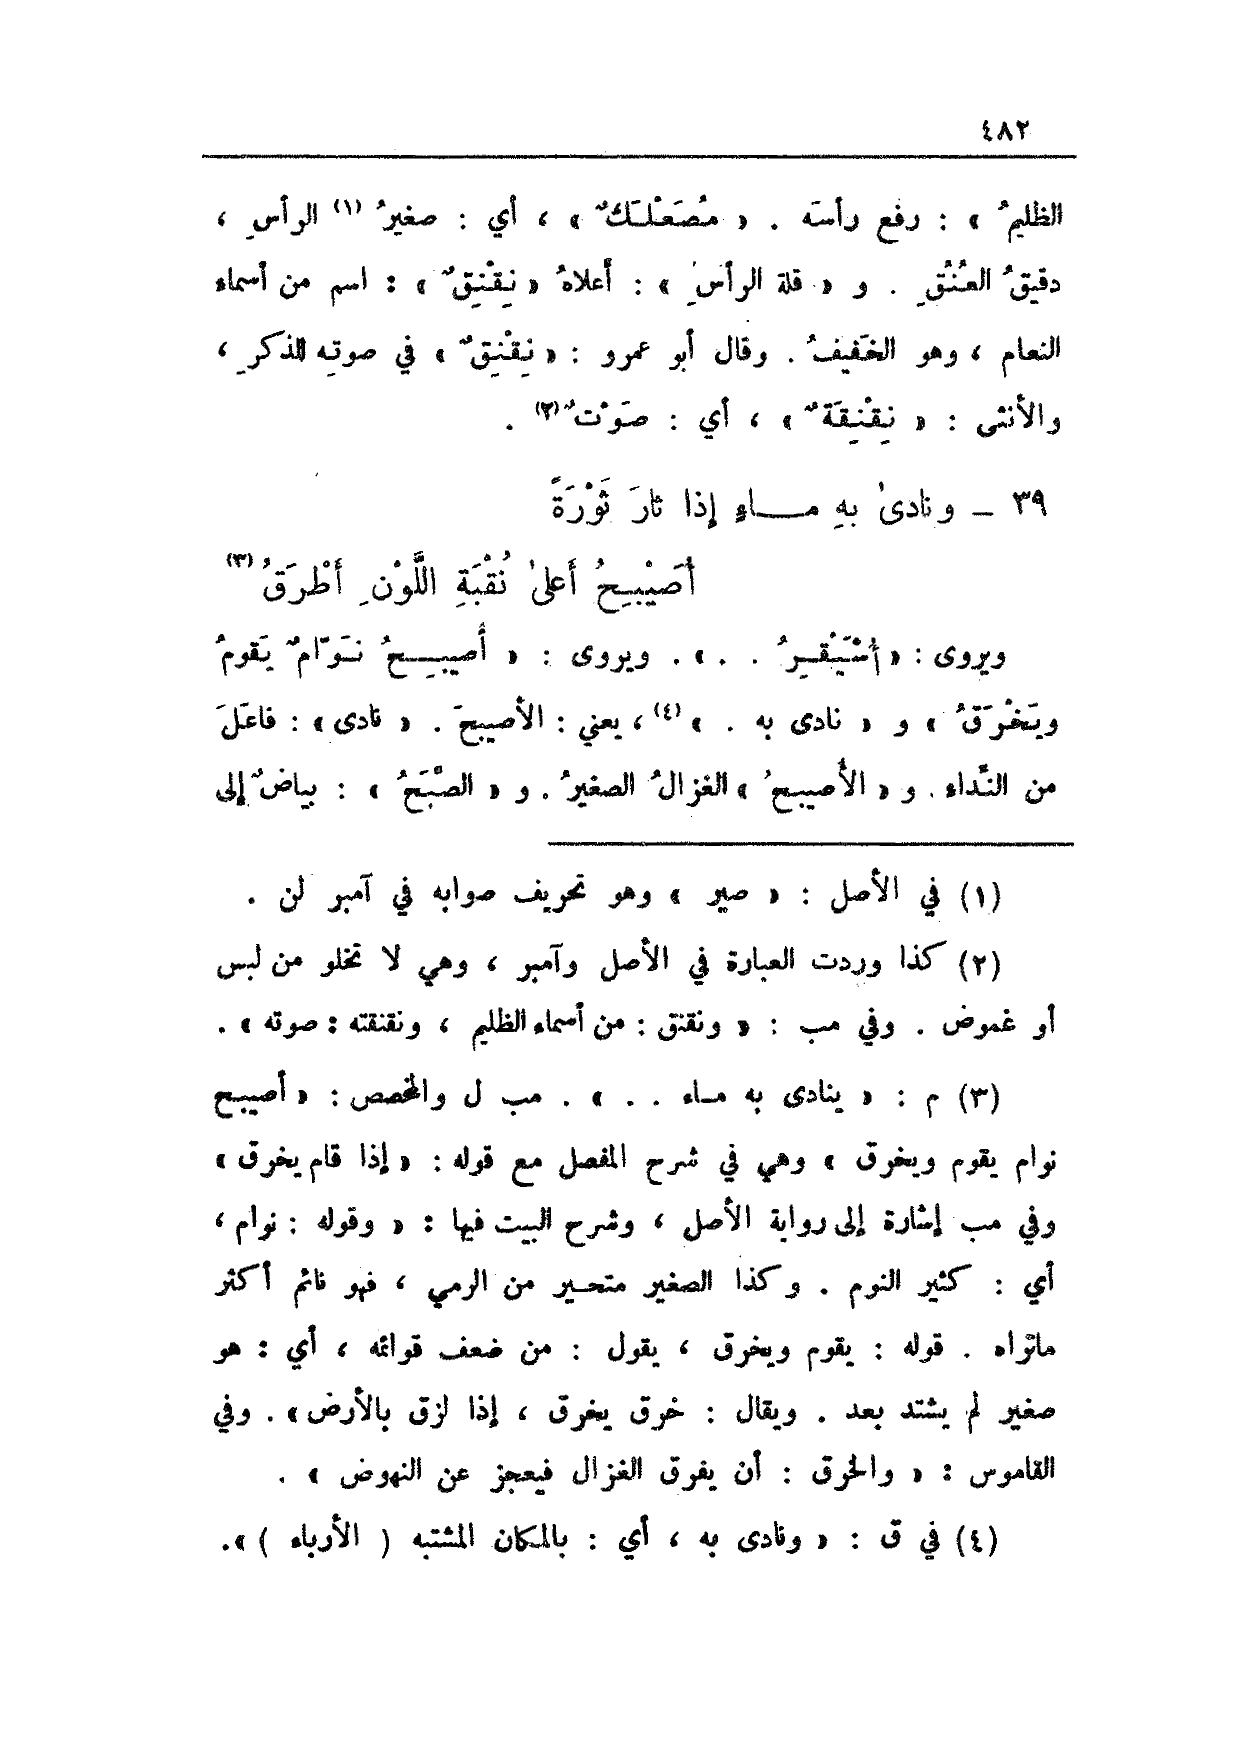 ٤٨٢
الظليمُ » : رفع رأسَه . « مُصَعْلَكٌ » ، أي : صغيرُ (١) الرأسِ ،
دقيقُ العُنُقِ . و « قلة الرأسِ » : أعلاهُ « نِقْنِقٌ » : اسم من أسماء
النعام ، وهو الخَفيفُ . وقال أبو عمرو : « نِقْنِقٌ » في صوتِه للذكرِ ،
والأنثى : « نِقْنِقَةٌ » ، أي : صَوْتٌ (٢) .
٣٩ – ونادىٰ بهِ مـــاءٍ إذا ثارَ ثَوْرَةً
أُصَيْبِحُ أعلىٰ نُقْبَةِ اللَّوْنِ أَطْرَقُ (٣)
ويروى : « أُشَيْقِرُ . . » . ويروى : « أُصيبِحُ نَوّامٌ يَقومُ
ويَخْرَقُ » و « نادى به . » (٤) ، يعني : الأصيبحَ . « نادى » : فاعَلَ
من النَّداء . و « الأُصيبحُ » الغزالُ الصغيرُ . و « الصُّبْحَُ » : بياضٌ إلى
(١) في الأصل : « صير » وهو تحريف صوابه في آمبر لن .
(٢) كذا وردت العبارة في الأصل وآمبر ، وهي لا تخلو من لبس
أو غموض . وفي مب : « ونقنق : من أسماء الظليم ، ونقنقته : صوته » .
(٣) م : « ينادى به مـاء . . » . مب ل والمخصص : « أصيبح
نوام يقوم ويخرق » وهي في شرح المفصل مع قوله : « إذا قام يخرق »
وفي مب إشارة إلى رواية الأصل ، وشرح البيت فيها : « وقوله : نوام ،
أي : كثير النوم . وكذا الصغير متحـير من الرمي ، فهو نائم أكثر
ماتراه . قوله : يقوم ويخرق ، يقول : من ضعف قوائمه ، أي : هو
صغير لم يشتد بعد . ويقال : خرق يخرق ، إذا لزق بالأرض » . وفي
القاموس : « والخرق : أن يفرق الغزال فيعجز عن النهوض » .
(٤) في ق : « ونادى به ، أي : بالمكان المشتبه ( الأرباء ) » .